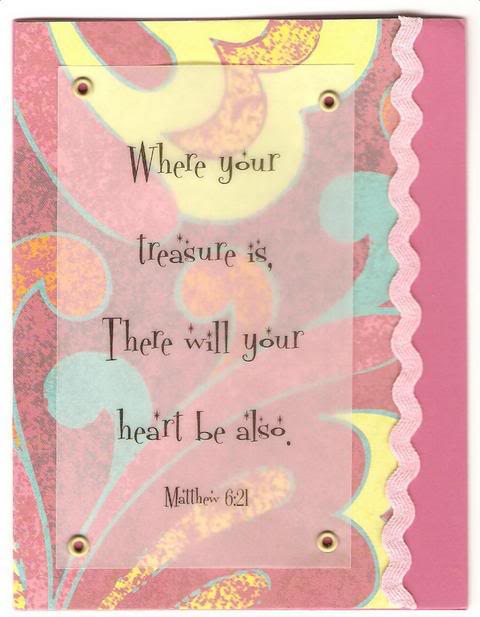 Where your
treasure is,
There will your
heart be also.
Matthew 6:21